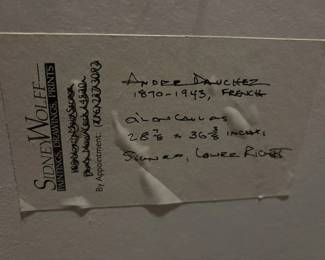 SIDNEY WOLFF
PAINTINGS, DRAWINGS, PRINTS
By Appointment:
ANDRE DAUCHEZ
1870-1943, FRENCH
OIL ON CANVAS
28 7/8 x 36 INCHES,
SIGNED, LOWER RIGHT